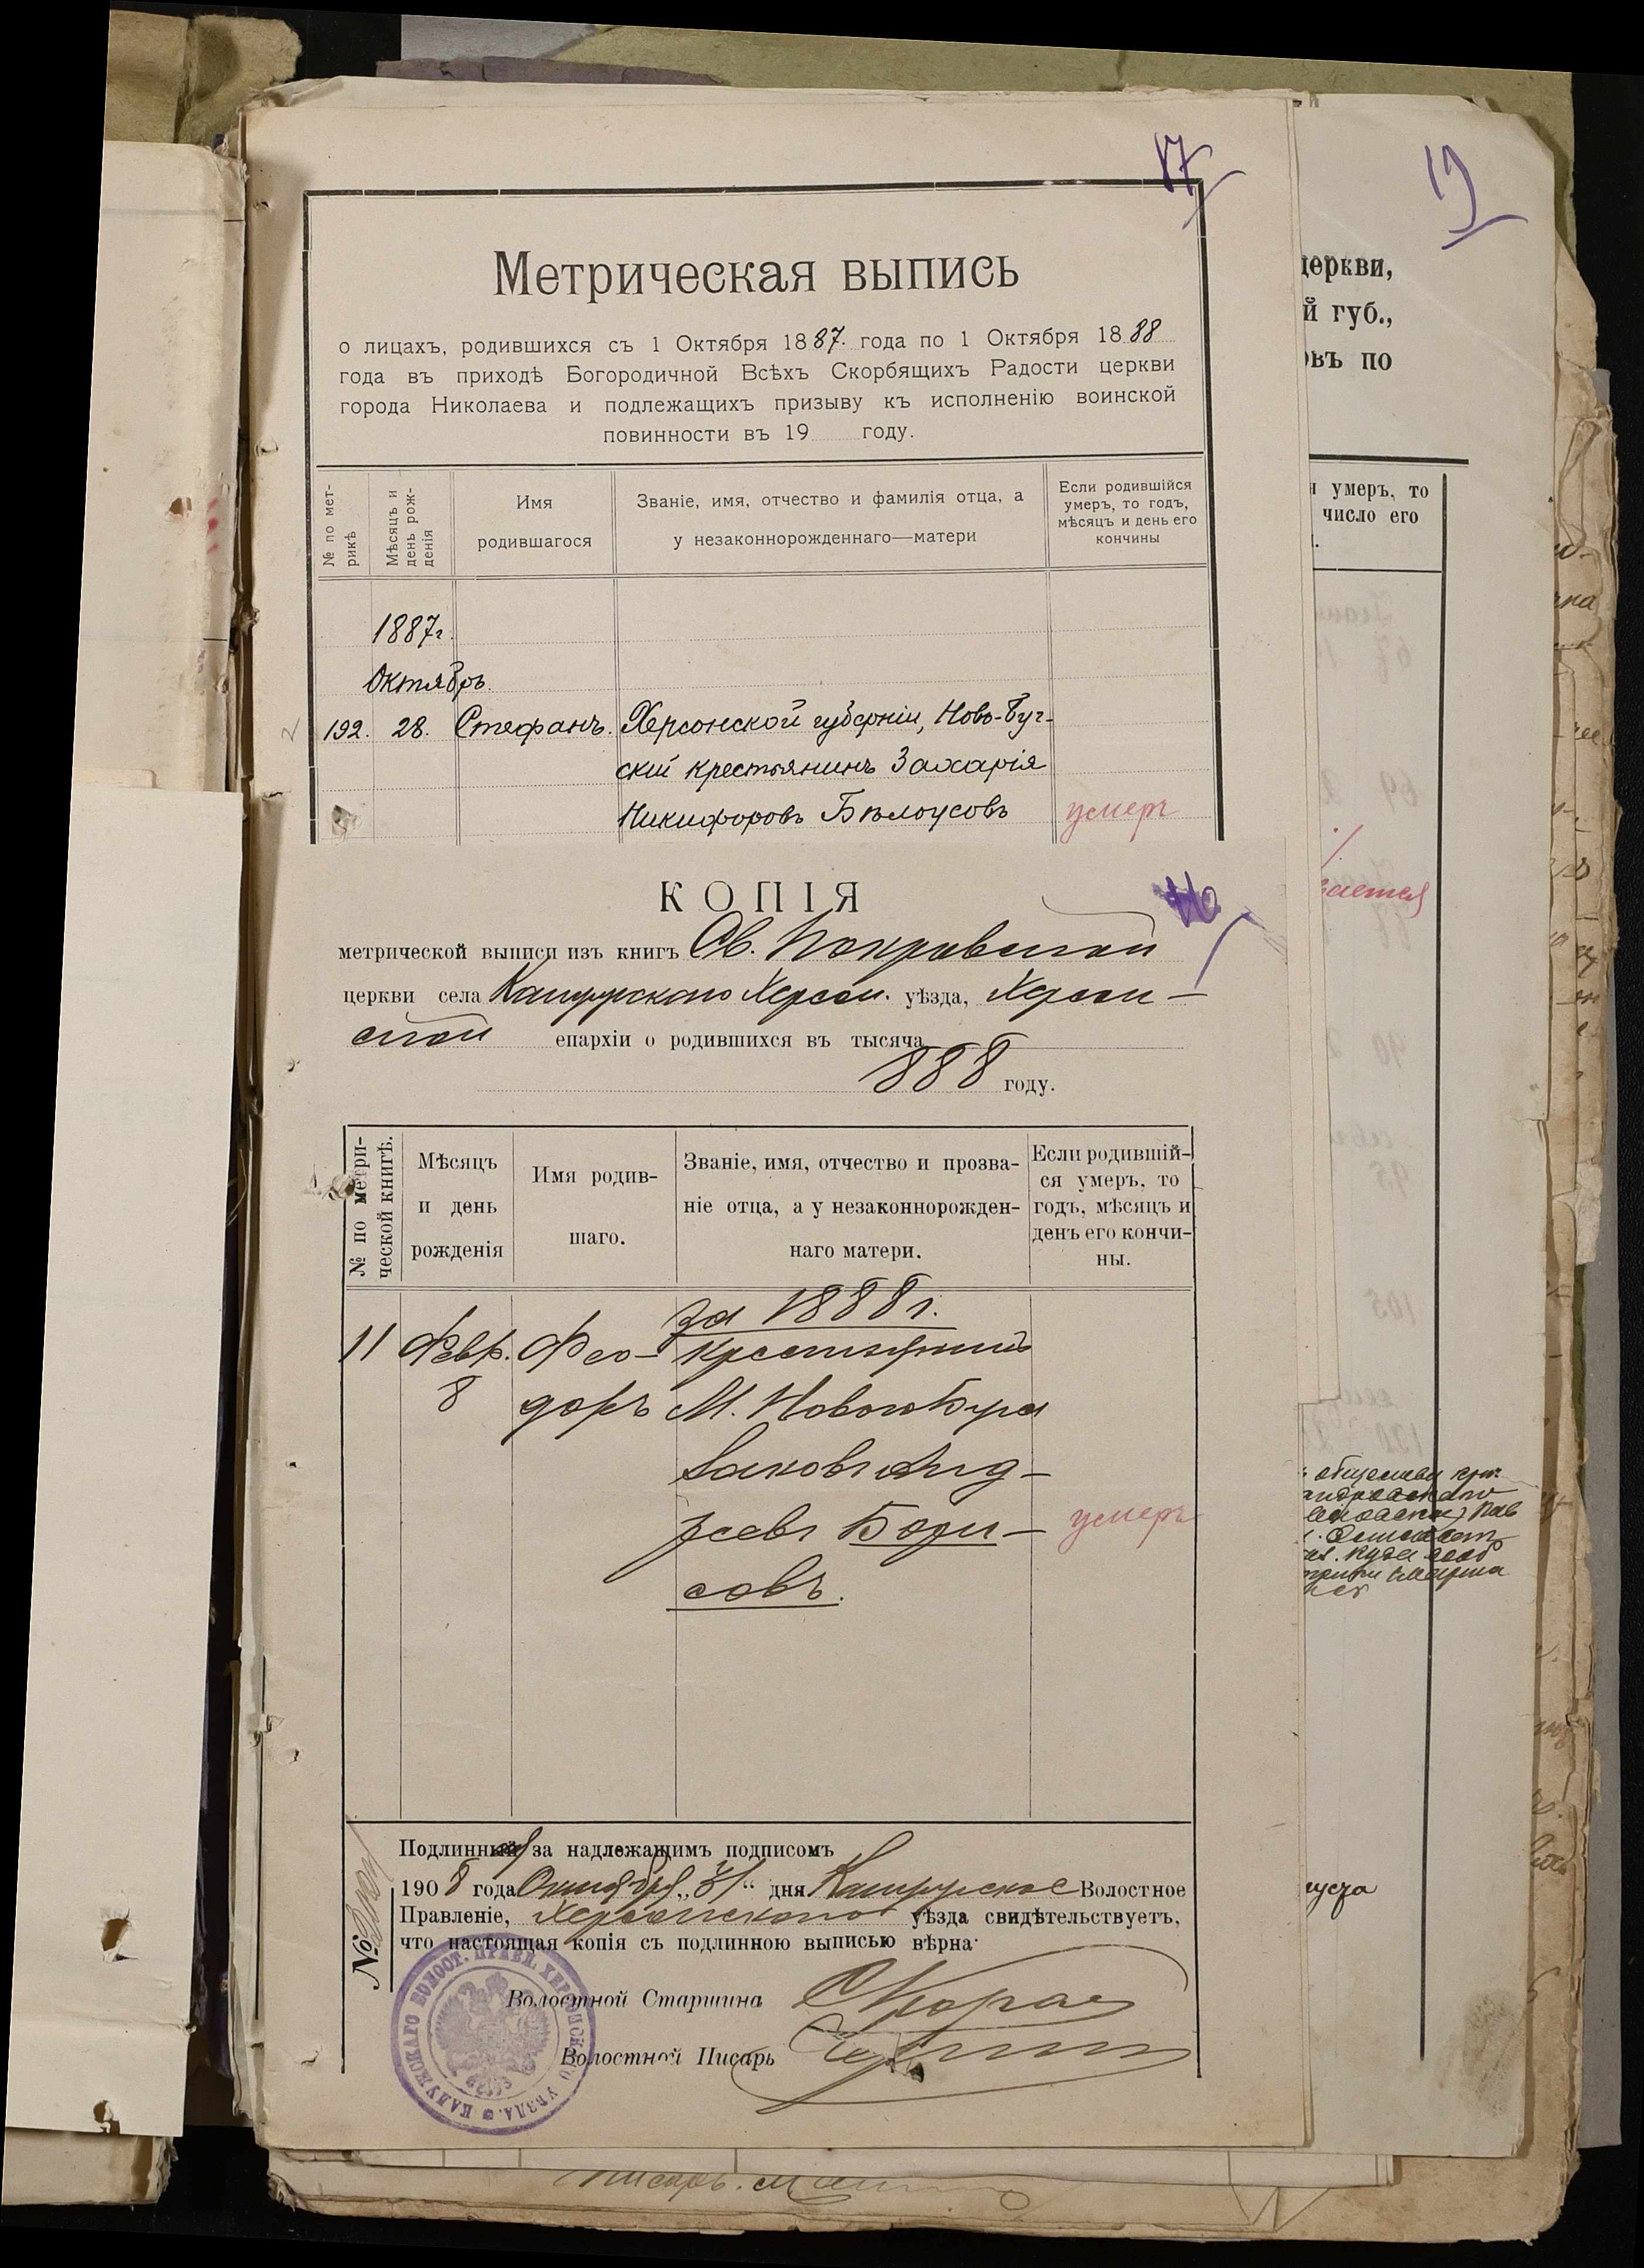 17
19
Метрическая выпись
о лицахъ, родившихся съ 1 Октября 1887. года по 1 Октября 1888
года въ приходѣ Богородичной Всѣхъ Скорбящихъ Радости церкви
города Николаева и подлежащихъ призыву къ исполненію воинской
повинности въ 19 году.
№ по мет-
рикѣ
Мѣсяцъ и
день рож-
денія
Имя
родившагося
Званіе, имя, отчество и фамилія отца, а
у незаконнорожденнаго—матери
Если родившійся
умеръ, то годъ,
мѣсяцъ и день его
кончины
1887г.
Октябрь.
192. 28. Стефанъ. Херсонской губерніи, Ново-Буг-
скій крестьянинъ Захарія
Никифоровъ Бѣлоусовъ умеръ
КОПІЯ
метрической выписи изъ книгъ Св. Покровской
церкви села Калужского Херсон. уѣзда, Херсон-
ской епархіи о родившихся въ тысяча
888 году.
№ по метри-
ческой книгѣ.
Мѣсяцъ
и день
рожденія
Имя родив-
шаго.
Званіе, имя, отчество и прозва-
ніе отца, а у незаконнорожден-
наго матери.
Если родившій-
ся умеръ, то
годъ, мѣсяцъ и
день его кончи-
ны.
за 1888 г.
11 Февр. Фео- крестьянинъ
8 доръ М. Нового Буга
Іаковъ Анд-
реевъ Бори- умеръ
совъ.
Подлинный за надлежащимъ подписомъ
1908 года Октября „31“ дня Калужское Волостное
Правленіе, Херсонского уѣзда свидѣтельствуетъ,
что настоящая копія съ подлинною выписью вѣрна.
№
Волостной Старшина
Волостной Писарь
КАЛУЖСКАГО ВОЛОСТ. ПРАВЛ. ХЕРСОНСКАГО УѢЗДА.
церкви,
й губ.,
овъ по
умеръ, то
число его
Писарь.